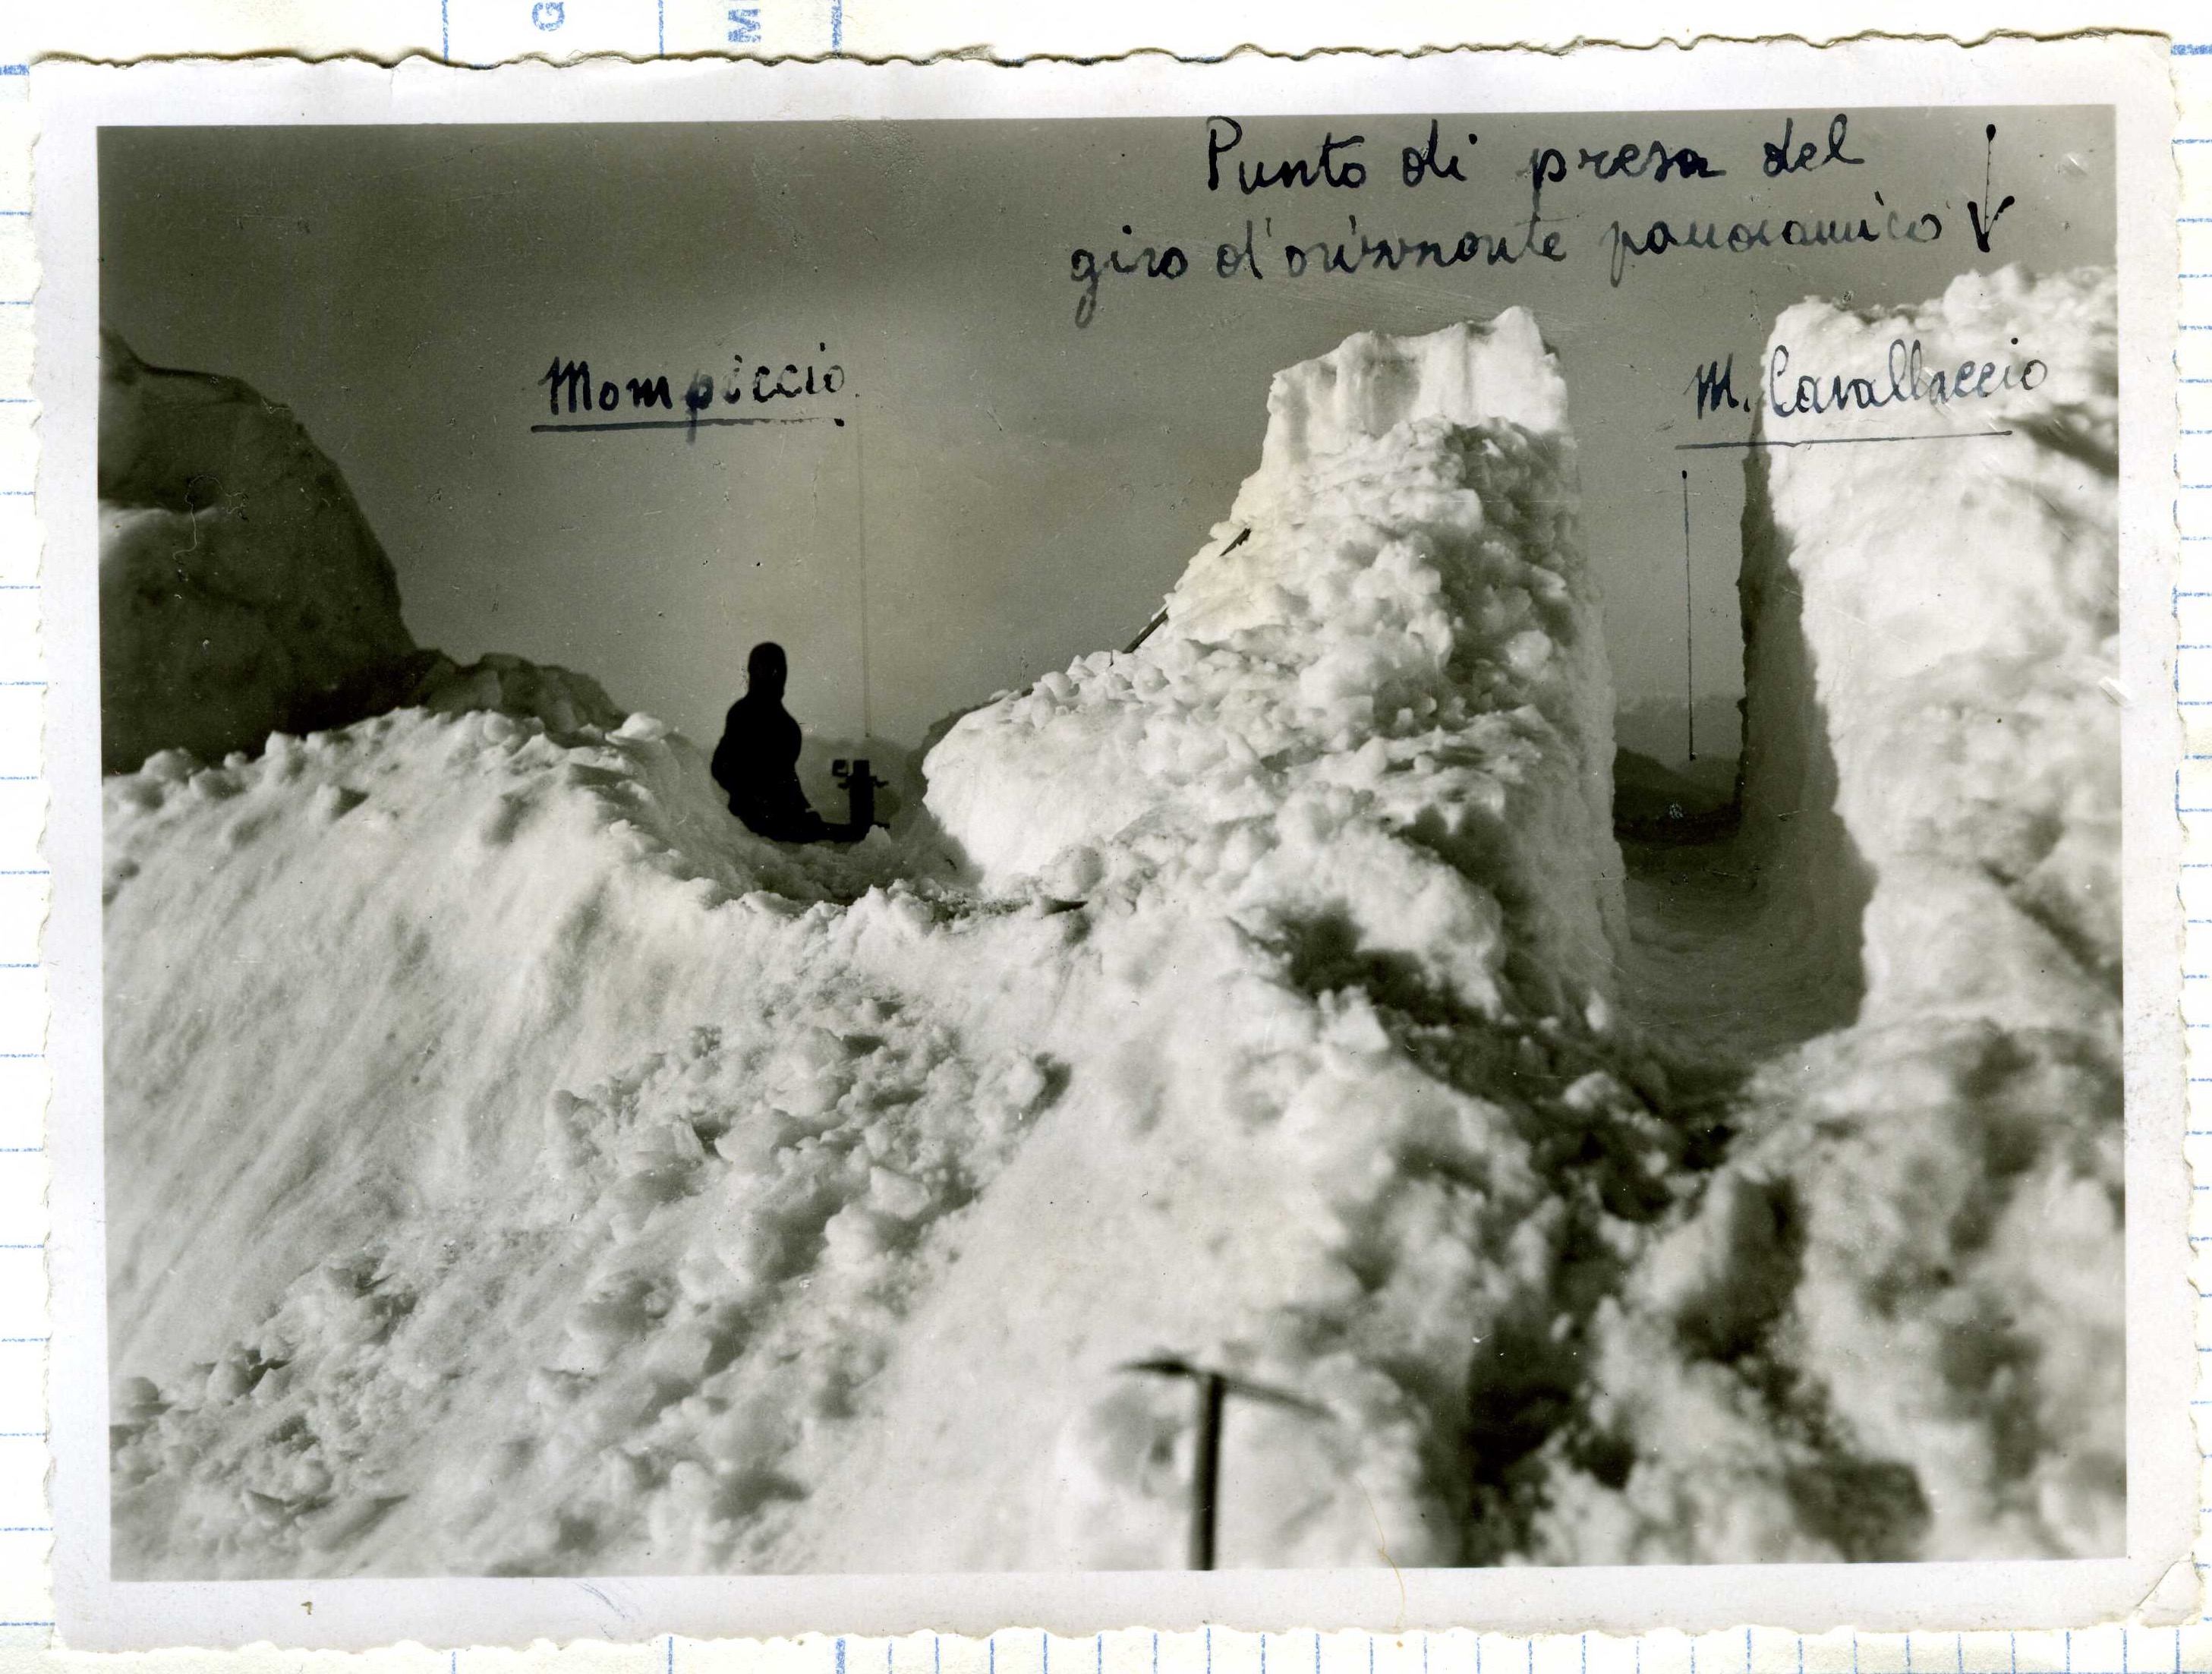 G
M
Punto di presa del
giro d'orizzonte panoramico
Mompiccio
M. Cavallaccio